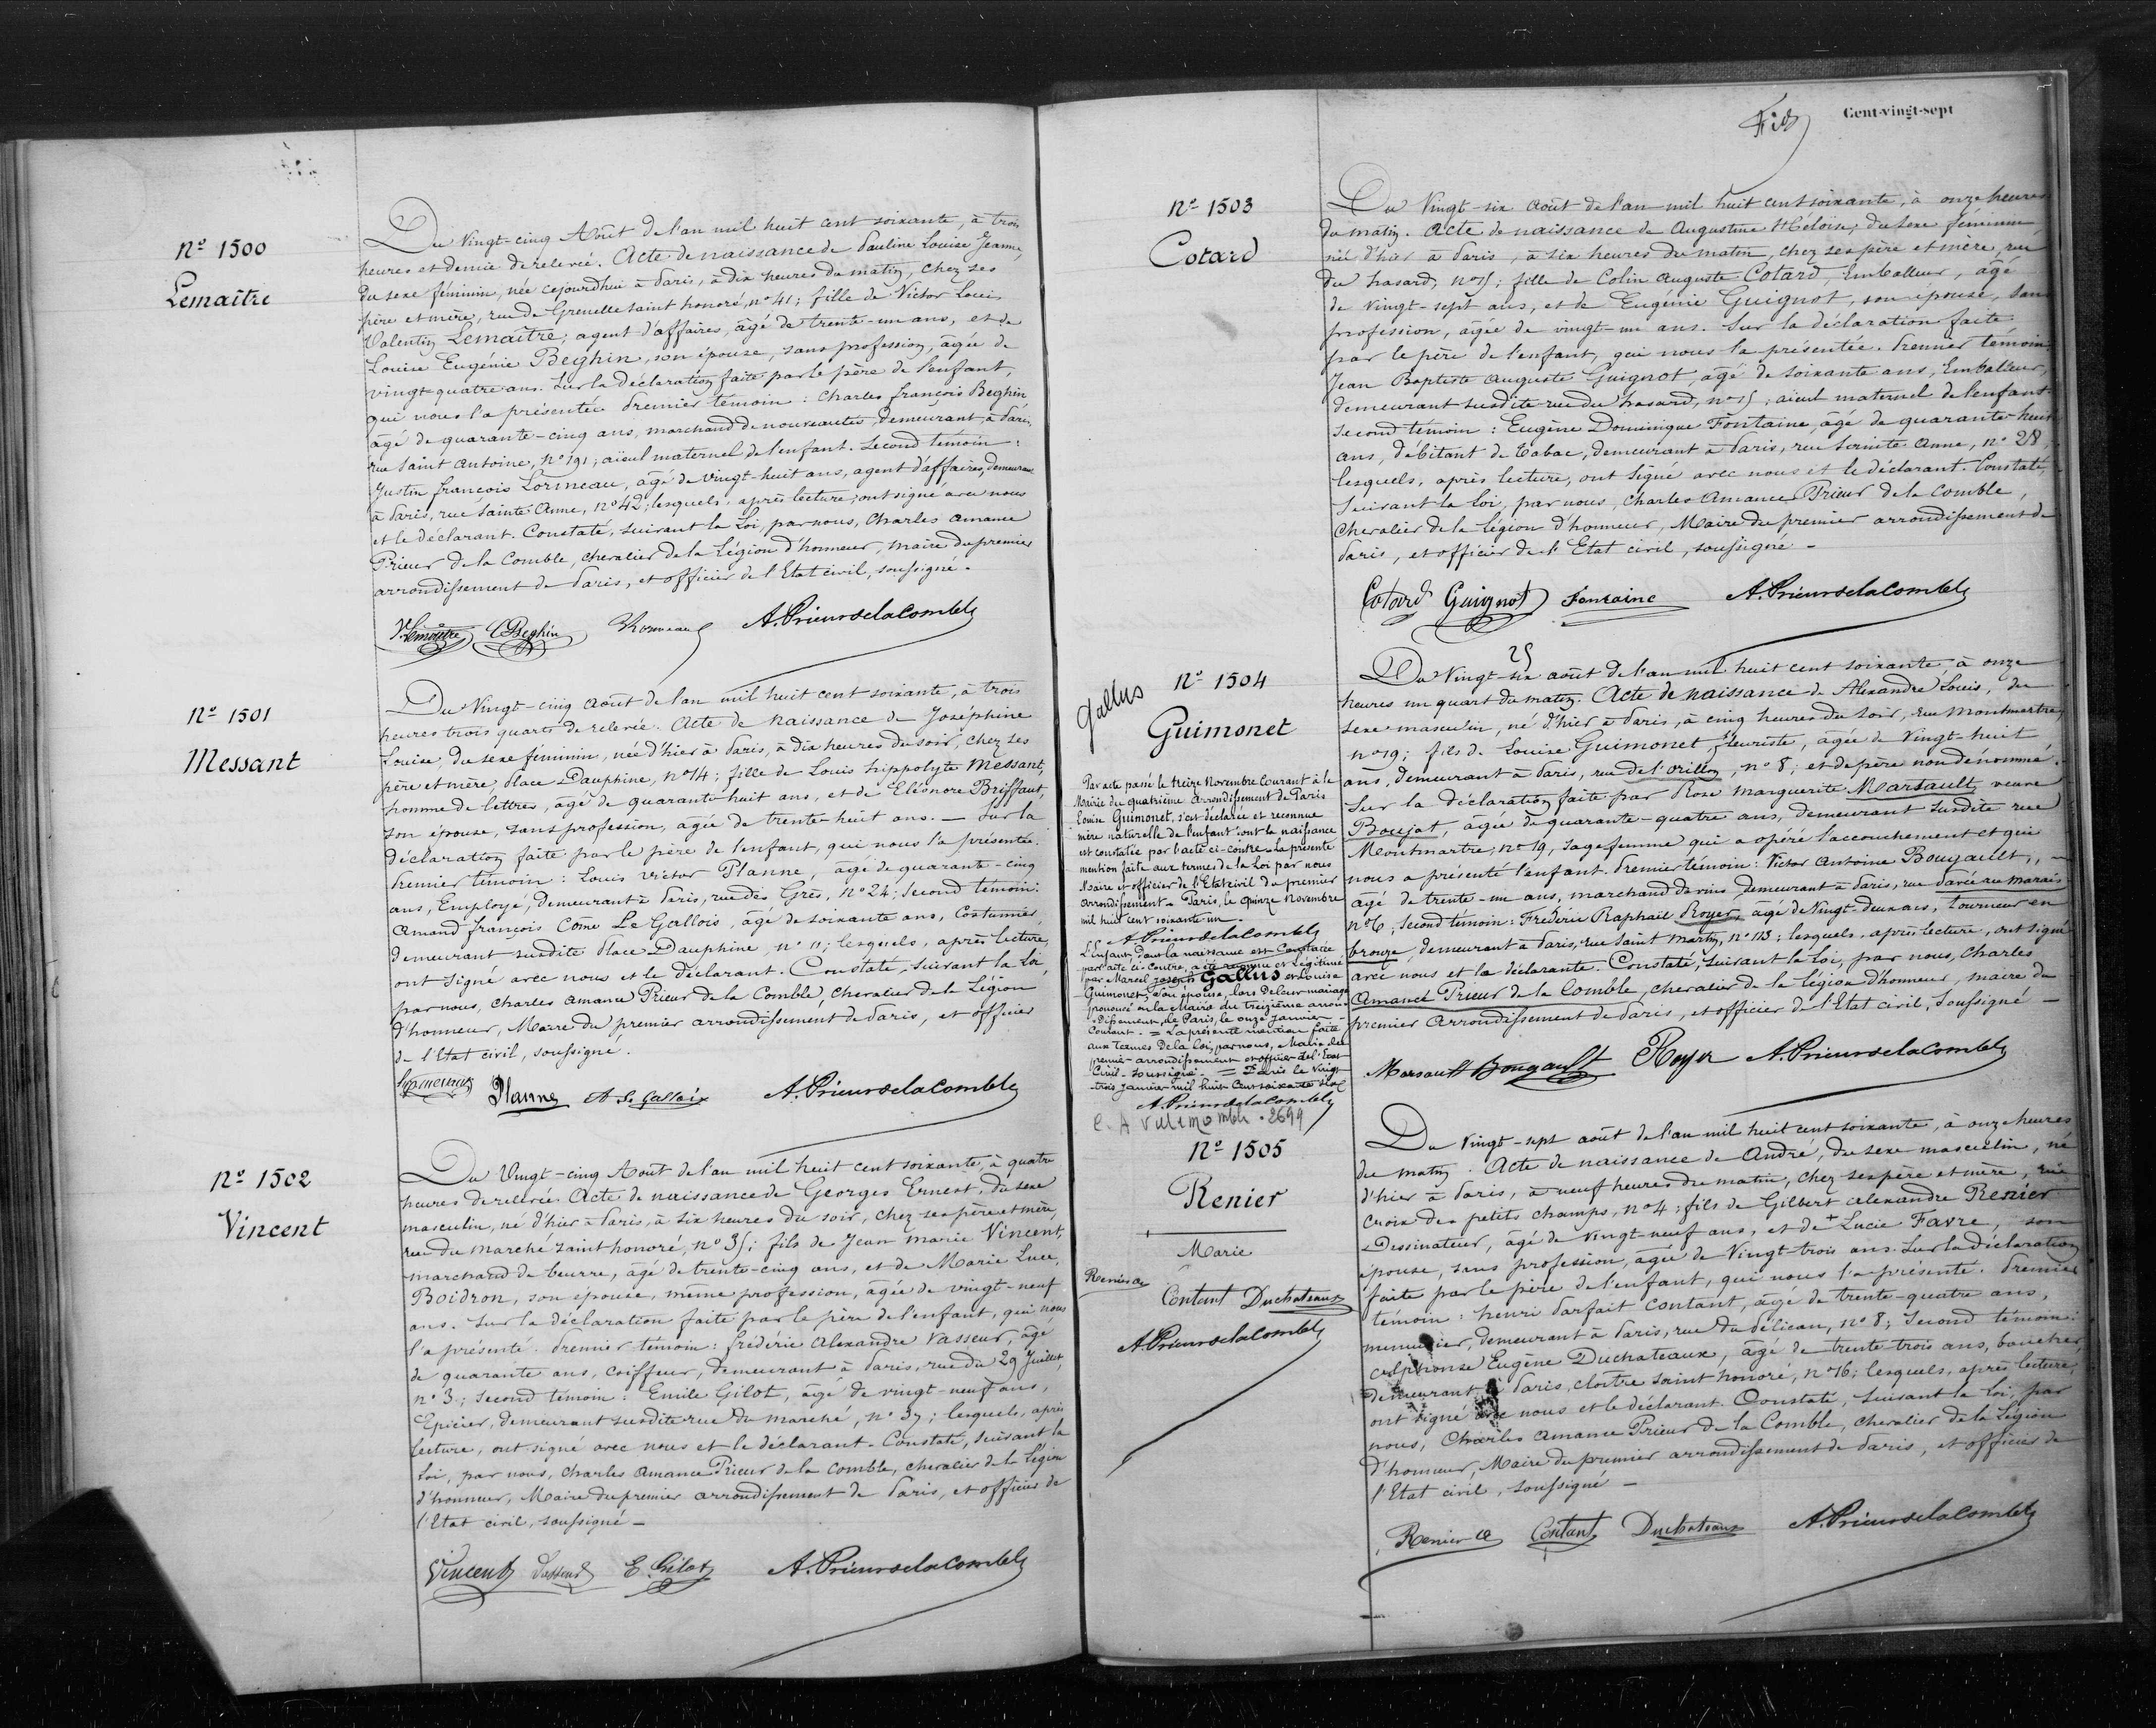 Nº 1500
Lemaître
Du Vingt-cinq Août de l'an mil huit cent soixante, à trois
heures et demie de relevée. Acte de naissance de Pauline Louise Jeanne,
du sexe féminin, née cejourdhui à Paris, à dix heures du matin, chez ses
père et mère, rue de Grenelle saint honoré, nº 41; fille de Victor Louis
Valentin Lemaître; agent d'affaires, âgé de trente-un ans, et de
Louise Eugénie Beghin, son épouse, sans profession, âgée de
vingt-quatre ans. Sur la déclaration faite par le père de l'enfant,
qui nous l'a présentée Premier témoin : Charles françois Beghin
âgé de quarante-cinq ans, marchand de nouveautés, demeurant à Paris,
rue Saint Antoine, nº 191; aïeul maternel de l'enfant. Second témoin :
Justin françois Lormeau, âgé de vingt-huit ans, agent d'affaires, demeurant
à Paris, rue Sainte Anne, nº 42; lesquels, après lecture, ont signé avec nous
et le déclarant. Constaté, suivant la Loi, par nous, Charles Amance
Prieur de la Comble, chevalier de la Légion d'honneur, maire du premier
arrondissement de Paris, et officier de l'Etat civil, soussigné.
Vr Lemaître CBeghin A. Prieur de la Comble
Nº 1501
Messant
Du Vingt-cinq août de l'an mil huit cent soixante, à trois
heures trois quarts de relevée. Acte de naissance de Joséphine
Louise, du sexe féminin, née d'hier à Paris, à dix heures du soir, chez ses
père et mère, place Dauphine, nº 14; fille de Louis hippolyte Messant,
homme de lettres, âgé de quarante-huit ans, et de Eléonore Briffaut,
son épouse, sans profession, âgée de trente-huit ans. — Sur la
déclaration faite par le père de l'enfant, qui nous l'a présentée.
Premier témoin : Louis victor Planne, âgé de quarante-cinq
ans, Employé, demeurant à Paris, rue des Grès, nº 24; Second témoin:
Amand françois Come Le Gallois, âgé de soixante ans, Costumier,
demeurant susdite place Dauphine, nº 11; lesquels, après lecture,
ont signé avec nous et le déclarant. Constaté, suivant la Loi,
par nous, Charles Amance Prieur de la Comble, chevalier de la Légion
d'honneur, Maire du premier arrondissement de Paris, et officier
de l'Etat civil, soussigné.
Planne A Le Gallois A. Prieur de la Comble
Nº 1502
Vincent
Du Vingt-cinq Aout de l'an mil huit cent soixante, à quatre
heures de relevée. Acte de naissance de Georges Ernest, du sexe
masculin, né d'hier à Paris, à six heures du soir, chez ses père et mère,
rue du marché saint honoré, nº 35; fils de Jean marie Vincent,
marchand de beurre, âgé de trente-cinq ans, et de Marie Luce,
Boidron, son épouse, même profession, âgée de vingt-neuf
ans. Sur la déclaration faite par le père de l'enfant, qui nous
l'a présenté. Premier témoin : frédéric Alexandre Vasseur, âgé
de quarante ans, coiffeur, demeurant à Paris, rue du 29 Juillet,
nº 3; Second témoin : Emile Gilot, âgé de vingt-neuf ans,
Epicier, demeurant susdite rue du marché, nº 37; lesquels, après
lecture, ont signé avec nous et le déclarant. Constaté, suivant la
Loi, par nous, Charles Amance Prieur de la Comble, chevalier de la Légion
d'honneur, Maire du premier arrondissement de Paris, et officier de
l'Etat civil, soussigné —
Vincent Vasseur E. Gilot A. Prieur de la Comble
Cent-vingt-sept
Nº 1503
Cotard
Du Vingt-six août de l'an mil huit cent soixante, à onze heures
du matin. Acte de naissance de Augustine Héloïse, du sexe féminin,
née d'hier à Paris, à six heures du matin, chez ses père et mère, rue
du hasard, nº 15; fille de Colin Auguste Cotard, Emballeur, âgé
de vingt-sept ans, et de Eugénie Guignot, son épouse, sans
profession, âgée de vingt-un ans. Sur la déclaration faite
par le père de l'enfant, qui nous l'a présentée. Premier témoin:
Jean Baptiste Auguste Guignot, âgé de soixante ans, Emballeur,
demeurant susdite rue du hasard, nº 15; aïeul maternel de l'enfant.
Second témoin : Eugène Dominique Fontaine, âgé de quarante-huit
ans, débitant de tabac, demeurant à Paris, rue Sainte Anne, nº 28,
lesquels, après lecture, ont signé avec nous et le déclarant. Constaté,
suivant la Loi, par nous, Charles Amance Prieur de la Comble,
Chevalier de la Légion d'honneur, Maire du premier arrondissement de
Paris, et officier de l'Etat civil, soussigné —
Cotard Guignot Fontaine A. Prieur de la Comble
Gallus
Nº 1504
Guimonet
Par acte passé le treize Novembre courant à la
Mairie du quatrième Arrondissement de Paris
Louise Guimonet, s'est déclarée et reconnue
mère naturelle de l'enfant dont la naissance
est constatée par l'acte ci-contre. La présente
mention faite aux termes de la Loi par nous
Maire et officier de l'Etat civil du premier
arrondissement. Paris, le quinze Novembre
mil huit cent soixante un.
A. Prieur de la Comble
L'Enfant dont la naissance est Constatée
par l'acte ci-contre, a été reconnu et légitimé
par Marcel Joseph Gallus et Louise
Guimonet, son épouse, lors de leur mariage
prononcé en la Mairie du treizième arron-
dissement de Paris, le onze Janvier
Courant. = La présente mention faite
aux termes de la Loi, par nous, Maire du
premier arrondissement et officier de l'Etat
Civil soussigné. = Paris le vingt
trois Janvier mil huit cent soixante
A. Prieur de la Comble
2699
25
Du Vingt-six août de l'an mil huit cent soixante, à onze
heures un quart du matin. Acte de naissance de Alexandre Louis, du
sexe masculin, né d'hier à Paris, à cinq heures du soir, rue Montmartre,
nº 19; fils de Louise Guimonet, fleuriste, âgée de vingt-huit
ans, demeurant à Paris, rue de l'orillon, nº 8; et de père non dénommé.
Sur la déclaration faite par Rose Marguerite Marsault, veuve
Boujat, âgée de quarante-quatre ans, demeurant susdite rue
Montmartre, nº 19, sage femme qui a opéré l'accouchement et qui
nous a présenté l'enfant. Premier témoin : Victor Antoine Bougault,
âgé de trente-un ans, marchand de vins, demeurant à Paris, rue Parée au marais
nº 6; Second témoin: Frédéric Raphaël Royer, âgé de vingt-deux ans, tourneur en
bronze, demeurant à Paris, rue Saint Martin, nº 113; lesquels, après lecture, ont signé
avec nous et la déclarante. Constaté, suivant la Loi, par nous, Charles
Amance Prieur de la Comble, chevalier de la Légion d'honneur, maire du
premier Arrondissement de Paris, et officier de l'Etat civil, soussigné —
Marsault Bougault Royer A Prieur de la Comble
Nº 1505
Renier
Marie
Renier a
Contant Duchateaux
A. Prieur de la Comble
Du Vingt-sept août de l'an mil huit cent soixante, à onze heures
du matin. Acte de naissance de André, du sexe masculin, né
d'hier à Paris, à neuf heures du matin, chez ses père et mère, rue
croix des petits champs, nº 4; fils de Gilbert Alexandre Renier
Dessinateur, âgé de vingt-neuf ans, et de + Lucie Favre, son
épouse, sans profession, âgée de vingt-trois ans. Sur la déclaration
faite par le père de l'enfant, qui nous l'a présenté. Premier
témoin : henri Parfait Contant, âgé de trente-quatre ans,
menuisier, demeurant à Paris, rue du Pélican, nº 8; Second témoin:
Alphonse Eugène Duchateaux, âgé de trente trois ans, boucher,
demeurant à Paris, cloître saint honoré, nº 16; lesquels, après lecture
ont signé avec nous et le déclarant. Constaté, suivant la Loi, par
nous, Charles Amance Prieur de la Comble, chevalier de la Légion
d'honneur, Maire du premier arrondissement de Paris, et officier de
l'Etat civil, soussigné —
Renier a Contant Duchateaux A. Prieur de la Comble